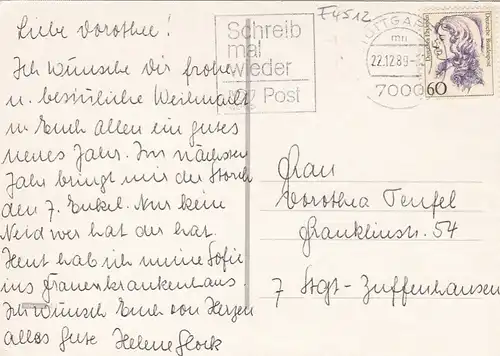 Liebe Dorothee!
Ich wünsche Dir frohe
u. besinnliche Weihnacht
u. Euch allen ein gutes
neues Jahr. Im nächsten
Jahr bringt mir der Storch
den 7. Enkel. Nur kein
Neid wer hat der hat.
Heut hab ich meine Sofie
ins Frauenkrankenhaus.
Ich wünsch Euch von Herzen
alles Gute Helene Glock
F4512
Schreib
mal
wieder
Post
22.12.89
7000
Deutsche Bundespost
60
Frau
Dorothea Teufel
Frankleinstr. 54
7 Stgt-Zuffenhausen